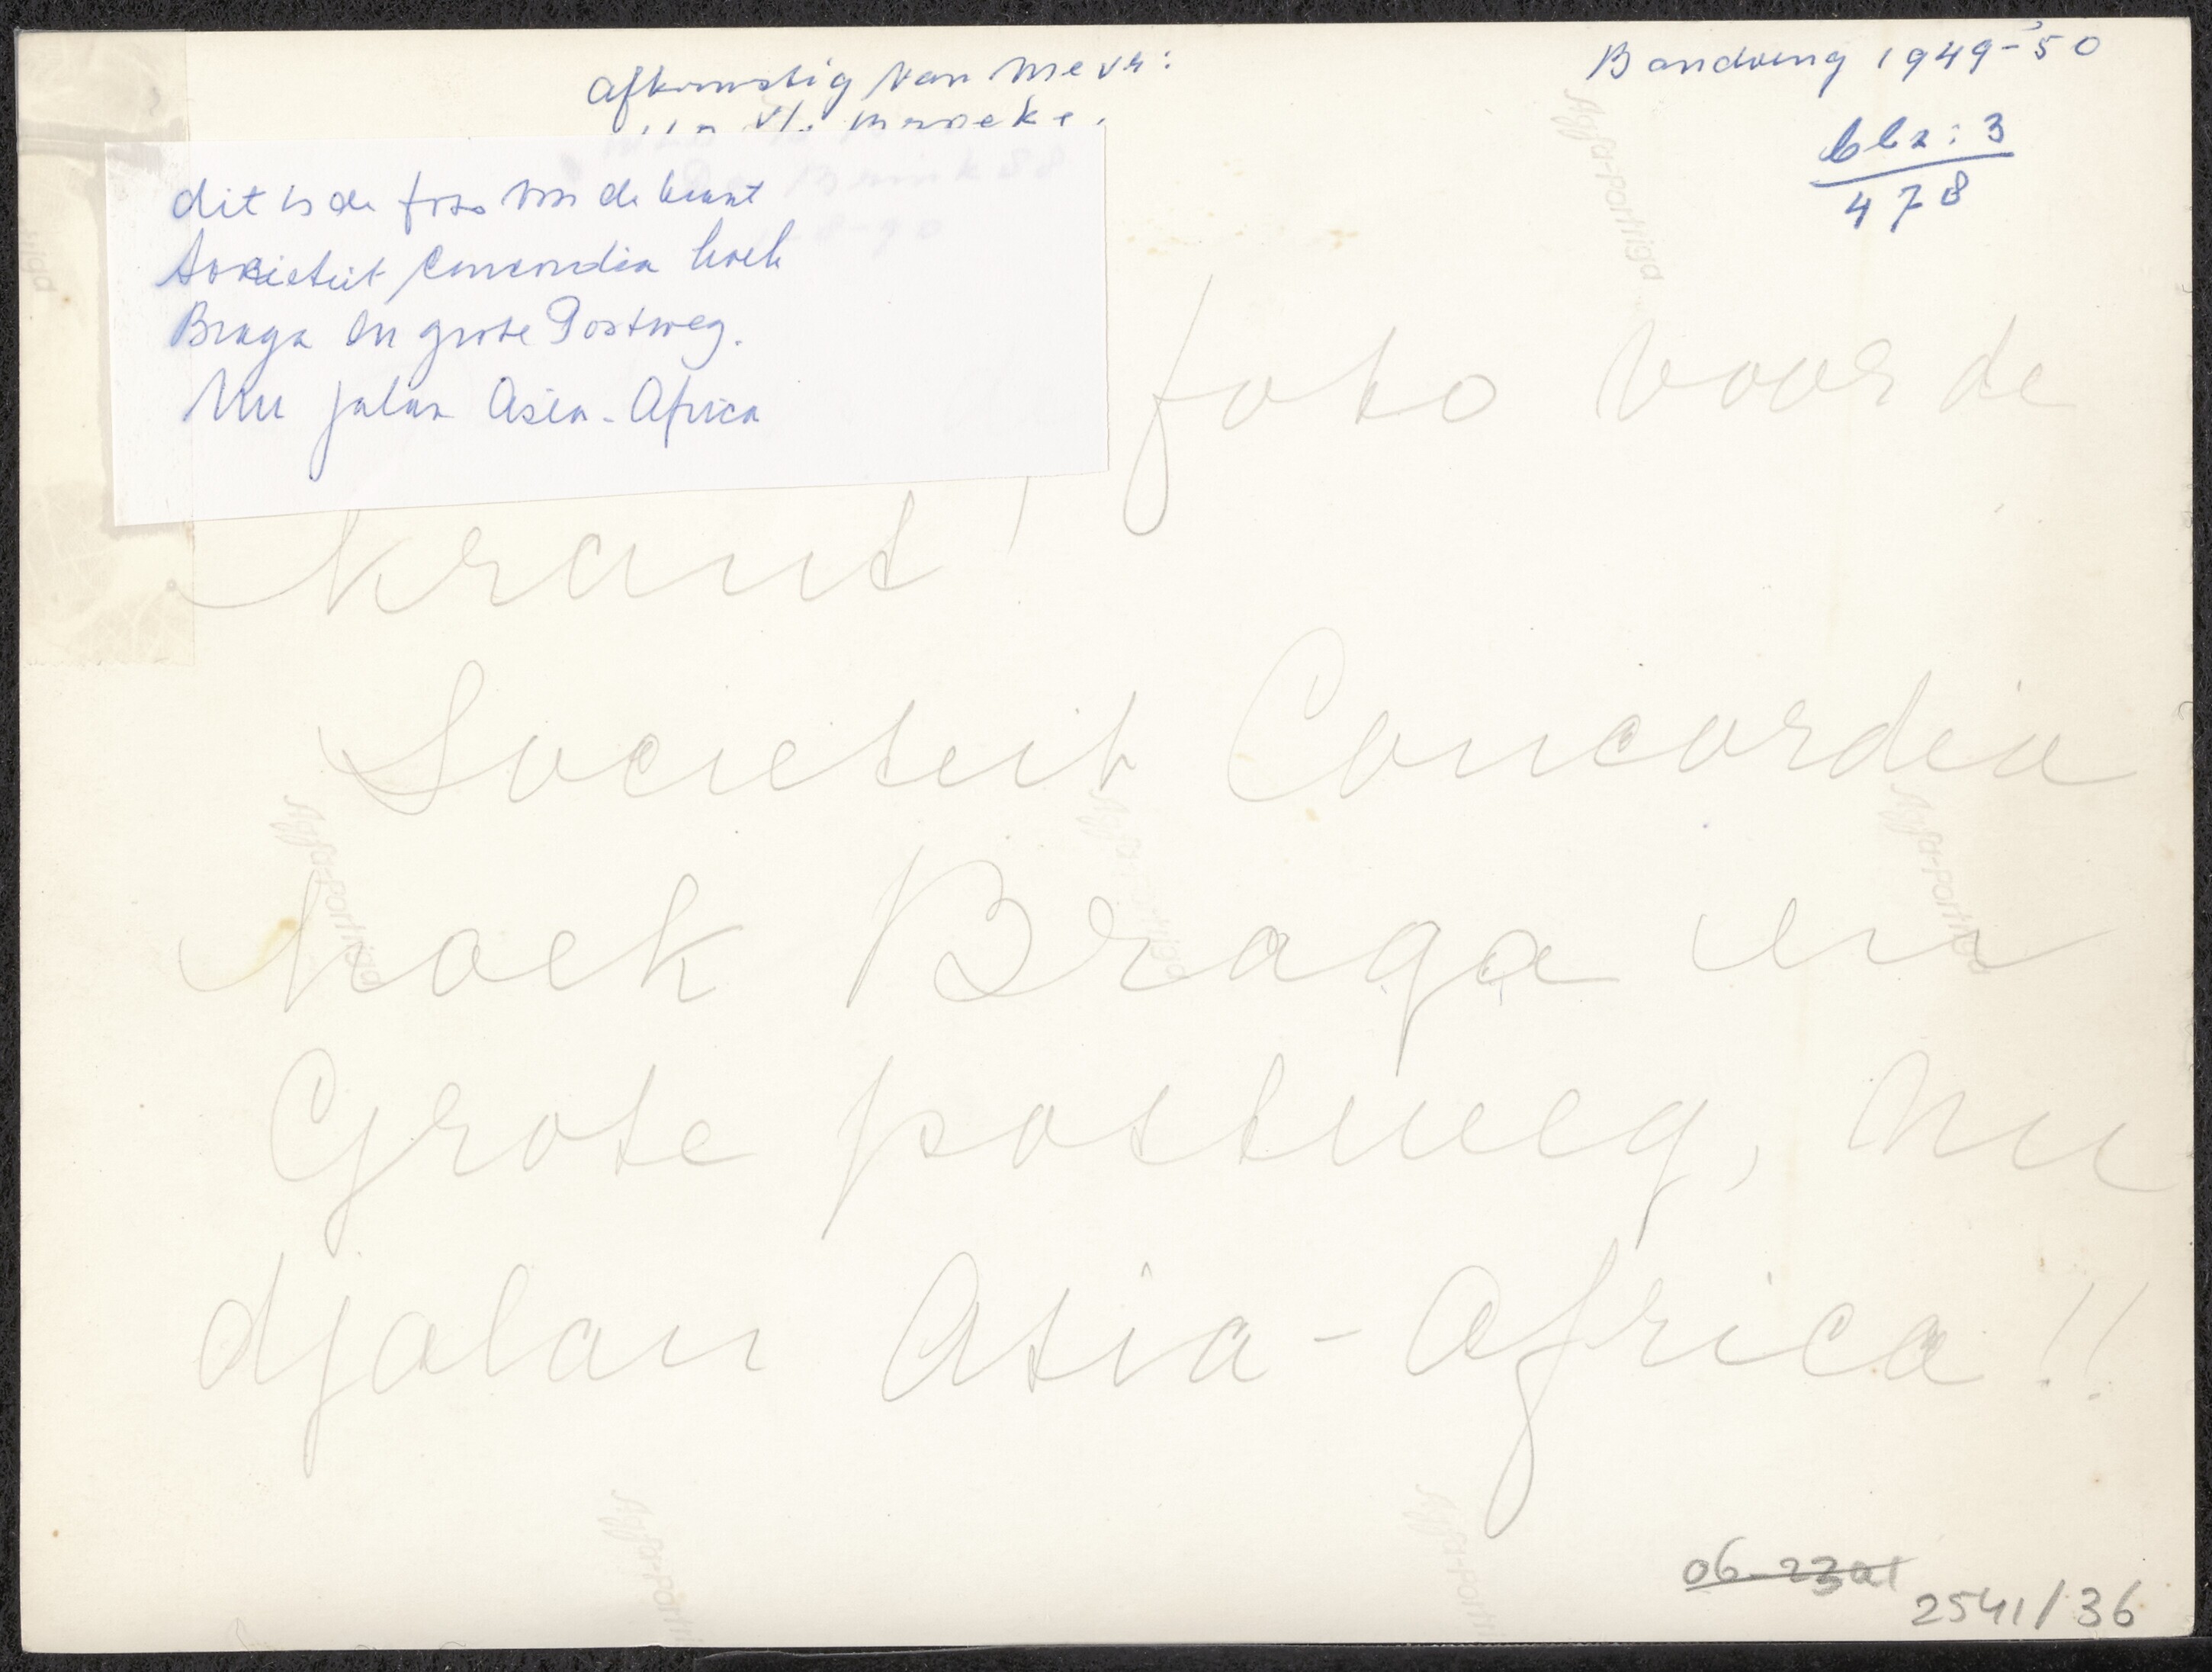 afkomstig van Mevr:
Bandoeng 1949-'50
blz: 3
478
dit is de foto voor de krant
Societeit Concordia hoek
Braga en grote Postweg.
Nu jalan Asia-Africa
foto voor de
krant!
Societeit Concordia
hoek Braga en
Grote postweg, nu
djalan Asia-Africa!!
2541/36